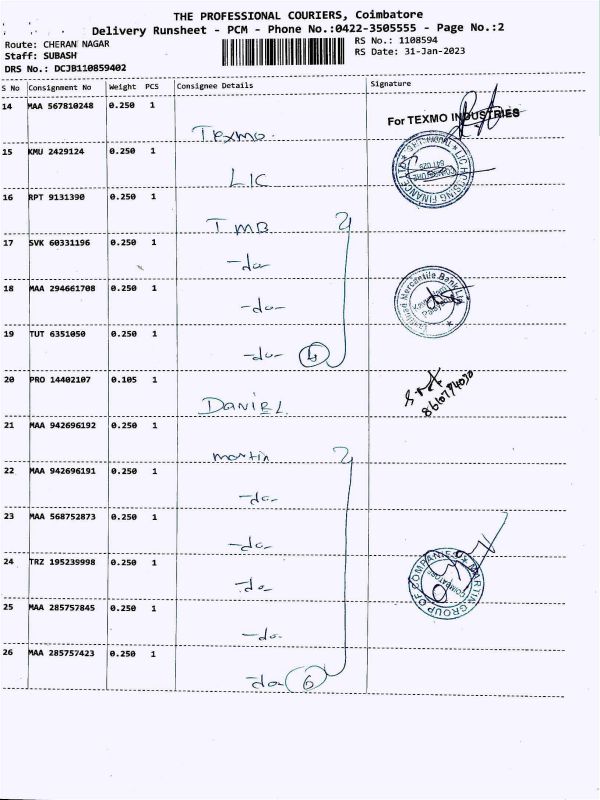 THE PROFESSIONAL COURIERS, Coimbatore
Delivery Runsheet - PCM - Phone No.:0422-3505555 - Page No.:2
Route: CHERAN NAGAR
RS No.: 1108594
Staff: SUBASH
RS Date: 31-Jan-2023
DRS No.: DCJB110859402
S No Consignment No Weight PCS Consignee Details Signature
14 MAA 567810248 0.250 1
For TEXMO INDUSTRIES
Texmo.
15 KMU 2429124 0.250 1
LIC HOUSING FINANCE LTD
641 029
LIC
16 RPT 9131390 0.250 1
TMB
17 SVK 60331196 0.250 1
-do-
18 MAA 294661708 0.250 1
Tamilnad Mercantile Bank Ltd
-do-
19 TUT 6351050 0.250 1
-do- 4
20 PRO 14402107 0.105 1
DANIEL
21 MAA 942696192 0.250 1
martin
22 MAA 942696191 0.250 1
-do-
23 MAA 568752873 0.250 1
-do-
24 TRZ 195239998 0.250 1
MARTIN GROUP OF COMPANIES
COIMBATORE
-do-
25 MAA 285757845 0.250 1
-do-
26 MAA 285757423 0.250 1
-do- 6